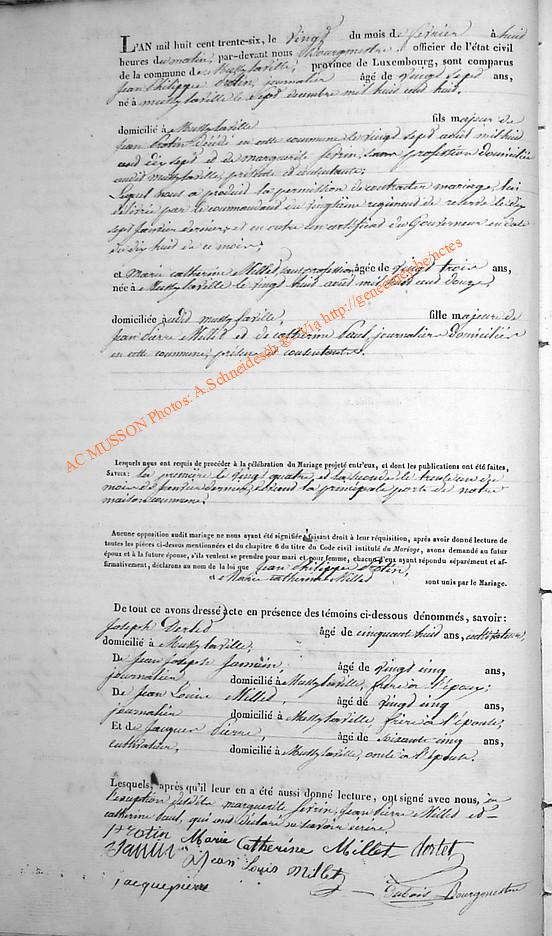 L'AN mil huit cent trente-six, le vingt du mois de février à huit
heures du matin, par-devant nous Bourgmestre officier de l'état civil
de la commune de Mussy laville, province de Luxembourg, sont comparus
jean Philippe Protin, journalier âgé de vingt sept ans,
né à mussy laville le sept décembre mil huit cent huit.
domicilié à Mussy laville fils majeur de
jean Protin décédé en cette commune le vingt sept août mil huit
cent dix sept et de marguerite sevrin, sans profession domiciliée
audit mussy laville, présente et consentante;
Lequel nous a produit la permission de contracter mariage, lui
délivrée par le commandant du vingtième régiment de réserve le dix
sept janvier dernier, et en outre un certificat du Gouverneur en date
du dix huit de ce mois;
et Marie catherine Millet, sans profession âgée de vingt trois ans,
née à Mussy laville le vingt huit août mil huit cent douze,
domiciliée audit mussy laville, fille majeure de
jean Pierre Millet et de catherine Paul, journalier domiciliés
en cette commune, présens et consentants.
AC MUSSON Photos: A.Schneidesch @ Via http://geneemes.be/actes
Lesquels nous ont requis de procéder à la célébration du Mariage projeté entr'eux, et dont les publications ont été faites,
SAVOIR: la première le vingt quatre, et la seconde le trente un du
mois de janvier dernier, devant la principale porte de notre
maison commune.
Aucune opposition audit mariage ne nous ayant été signifiée, faisant droit à leur réquisition, après avoir donné lecture de
toutes les pièces ci-dessus mentionnées et du chapitre 6 du titre du Code civil intitulé du Mariage, avons demandé au futur
époux et à la future épouse, s'ils veulent se prendre pour mari et pour femme, chacun d'eux ayant répondu séparément et af-
firmativement, déclarons au nom de la loi que jean Philippe Protin,
et Marie catherine Millet sont unis par le Mariage.
De tout ce avons dressé acte en présence des témoins ci-dessous dénommés, savoir:
joseph âgé de cinquante huit ans, cultivateur,
domicilié à Mussy laville,
De jean joseph âgé de vingt cinq ans,
journalier domicilié à Mussy laville, frère à l'époux;
De jean Louis Millet, âgé de vingt cinq ans,
journalier domicilié à Mussy laville, frère à l'épouse;
Et de jacques Pierre, âgé de soixante cinq ans,
cultivateur, domicilié à Mussy laville, oncle à l'épouse.
Lesquels, après qu'il leur en a été aussi donné lecture, ont signé avec nous, à
l'exception de marguerite sevrin, jean Pierre Millet et
catherine Paul, qui ont déclaré ne savoir écrire.
Protin Marie Catherine Millet
jean Louis Millet
jacque pierre Bourgmestre